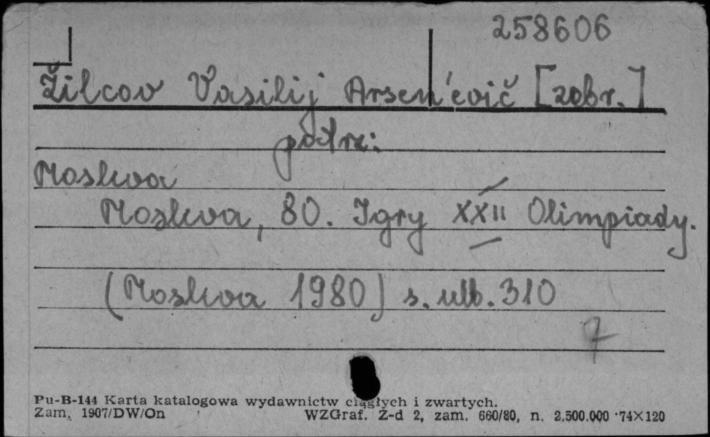 258606
Žilcov Vasilij Arsen'evič [zobr.]
patrz:
Moskva
Moskva, 80. Igry XXII Olimpiady.
(Moskva 1980) s. ulb. 310
7
Pu-B-144 Karta katalogowa wydawnictw ciągłych i zwartych.
Zam. 1907/DW/On WZGraf. Z-d 2, zam. 660/80, n. 2.500.000 74×120